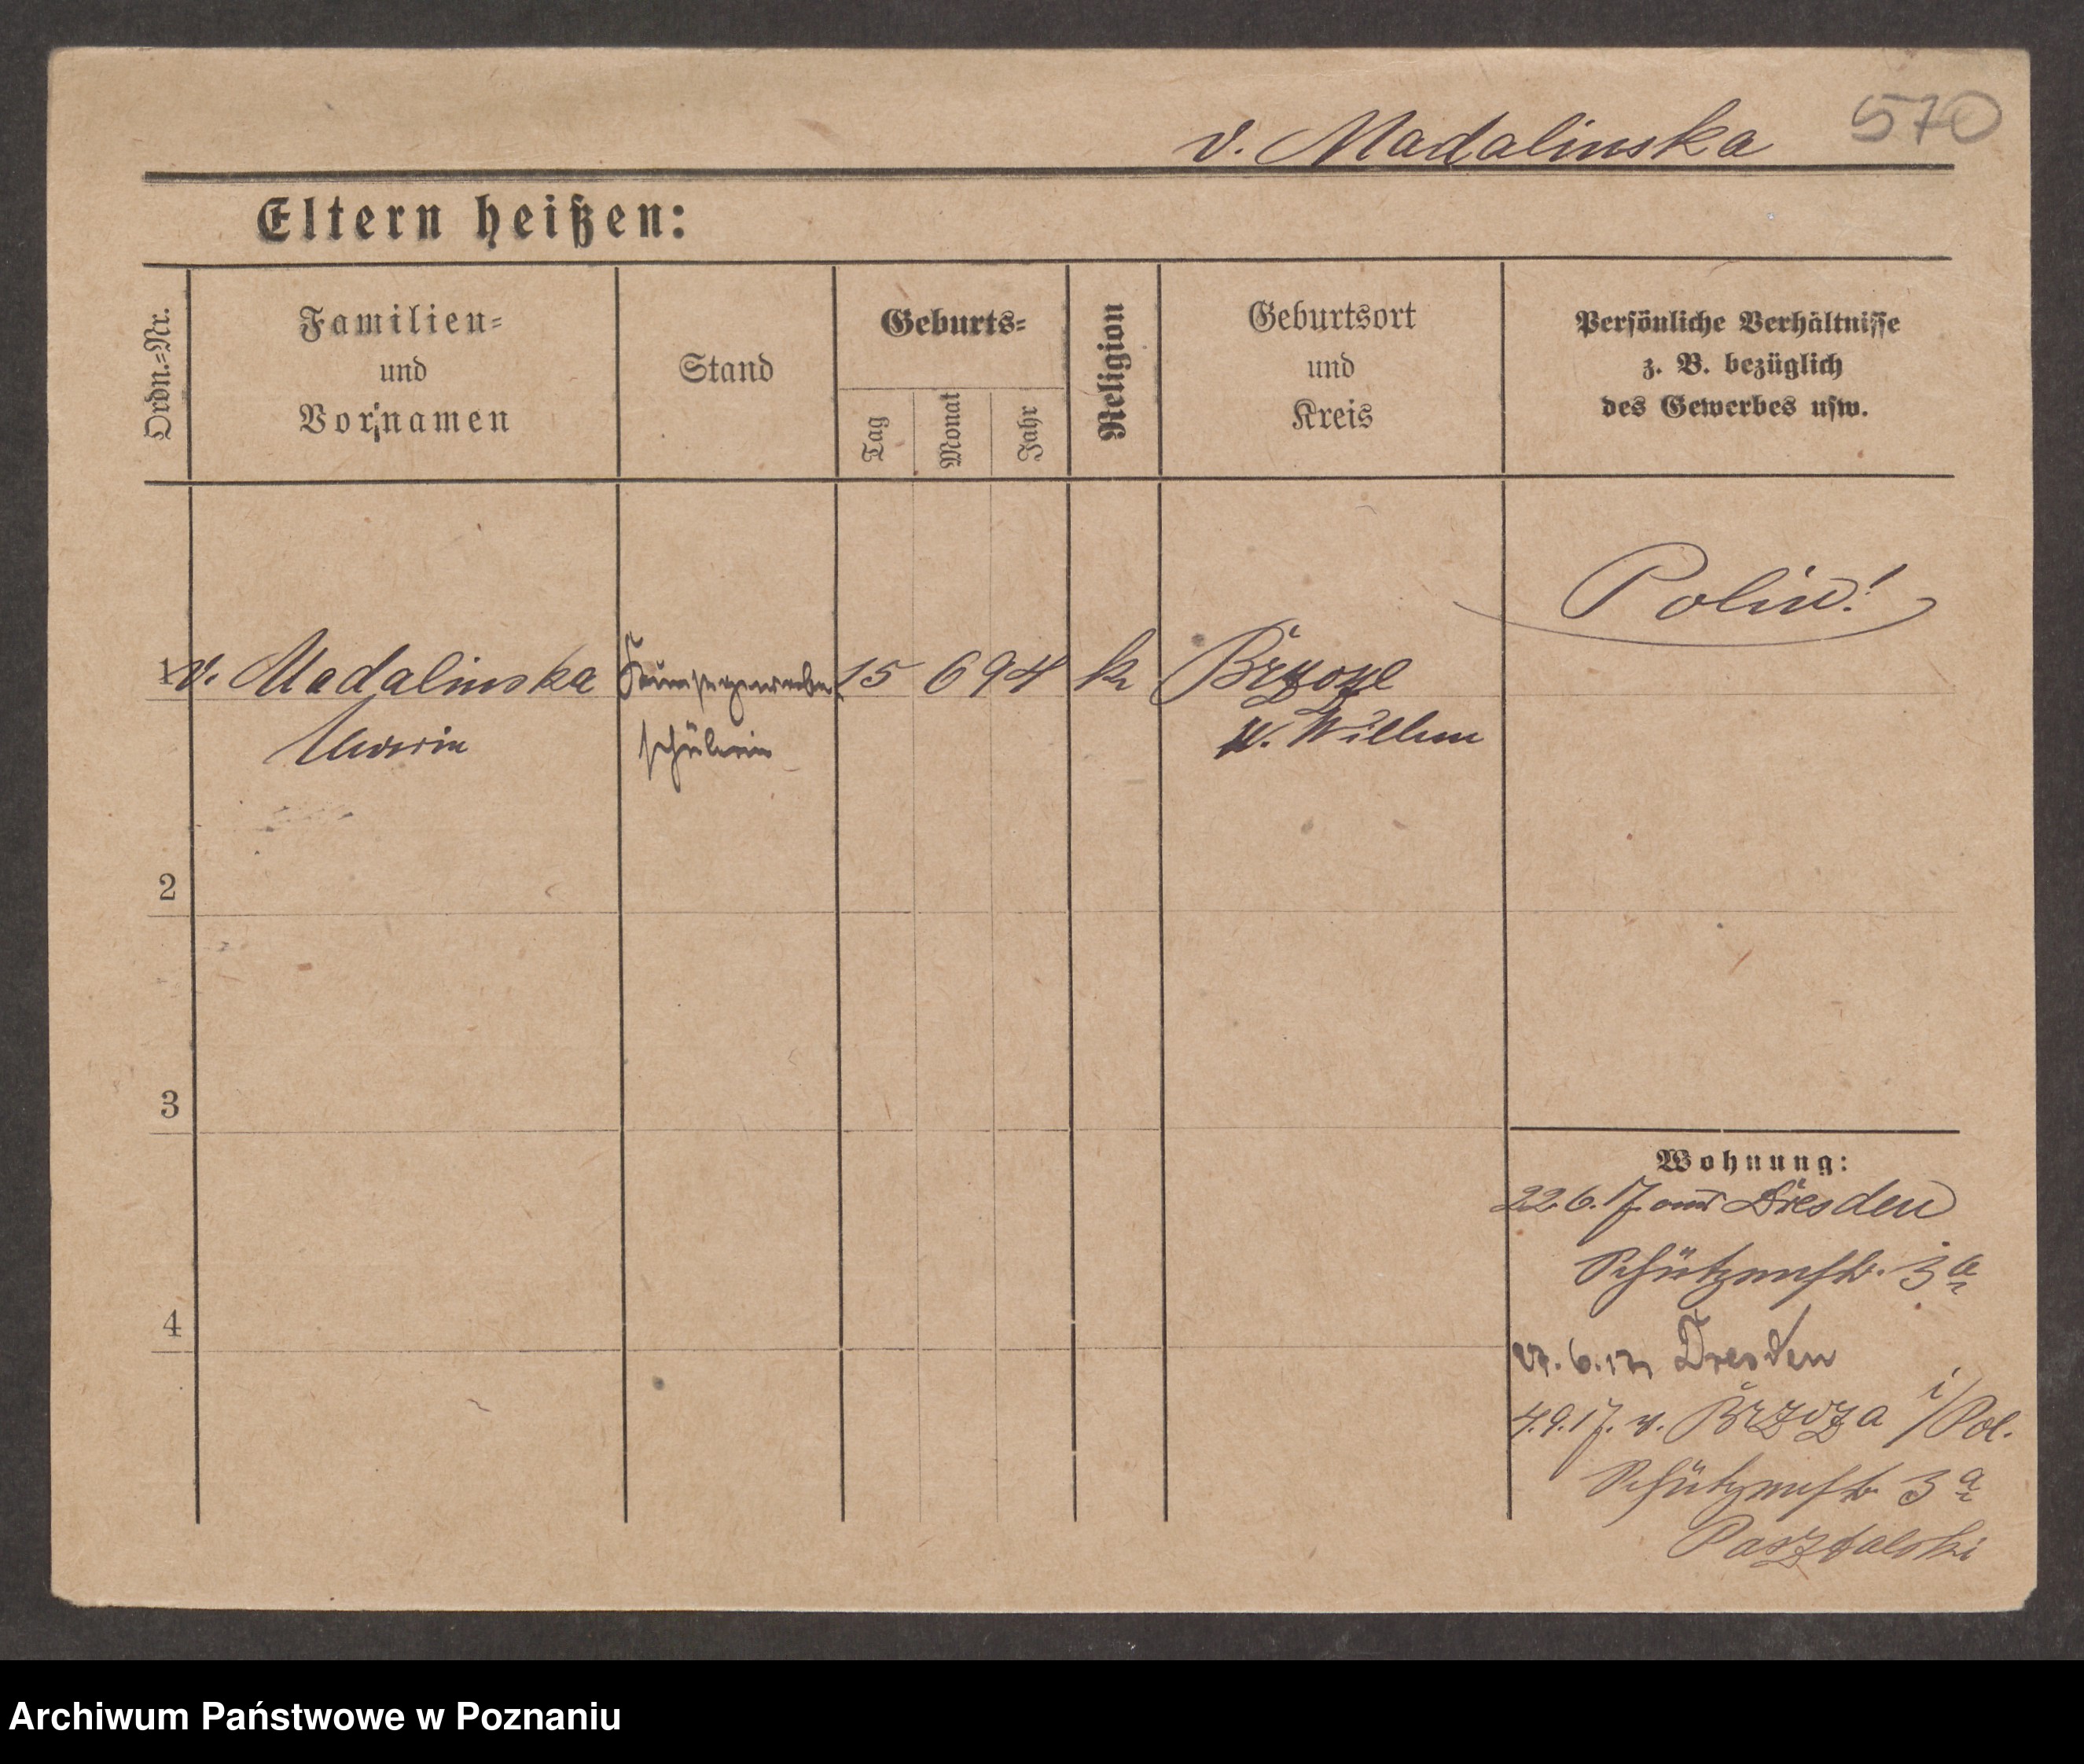 v. Madalinska 570
Eltern heißen:
Ordn.=Nr.
Familien=
und
Vornamen
Stand
Geburts=
Tag
Monat
Jahr
Religion
Geburtsort
und
Kreis
Persönliche Verhältnisse
z. B. bezüglich
des Gewerbes usw.
Polin!
1 v. Madalinska Kunstgewerbe 15 6 94 k.
schülerin
2
3
4
Wohnung:
22.6.17. aus Dresden
Schützenstr. 3a
Dresden
4.9.17. v. Brzoza i/Pol.
Schützenstr. 3a